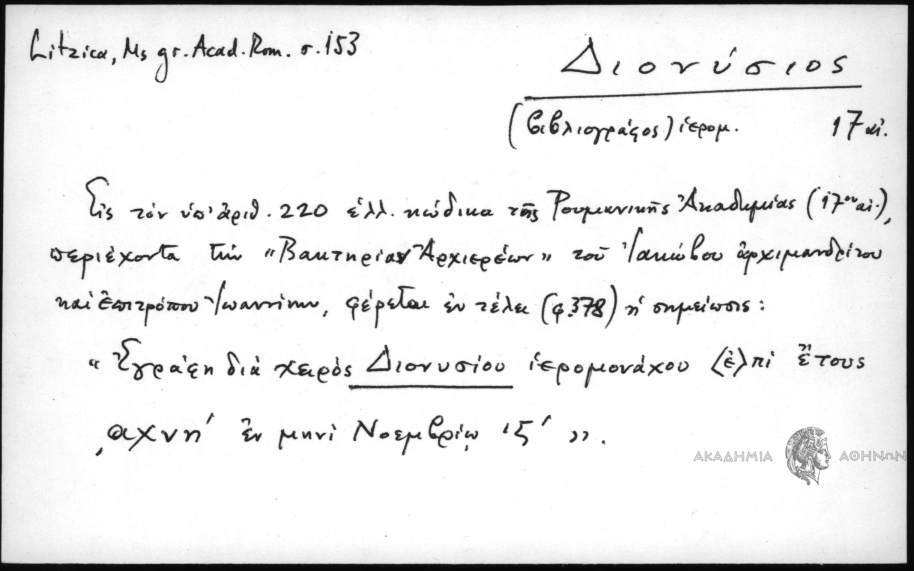 Litzica, Ms gr. Acad. Rom. σ. 153
Διονύσιος
(βιβλιογράφος) ἱερομ. 17 αἰ.
Εἰς τὸν ὑπ' ἀριθ. 220 ἑλλ. κώδικα τῆς Ρουμανικῆς Ἀκαδημίας (17ου αἰ.),
περιέχοντα τὴν «Βακτηρίαν Ἀρχιερέων» τοῦ Ἰακώβου ἀρχιμανδρίτου
καὶ ἐπιτρόπου Ἰωαννίνων, φέρεται ἐν τέλει (φ. 378) ἡ σημείωσις:
«Ἐγράφη διὰ χειρὸς Διονυσίου ἱερομονάχου ⟨ἐ⟩πὶ ἔτους
͵αχνη' ἐν μηνὶ Νοεμβρίῳ ιζ'».
ΑΚΑΔΗΜΙΑ ΑΘΗΝΩΝ